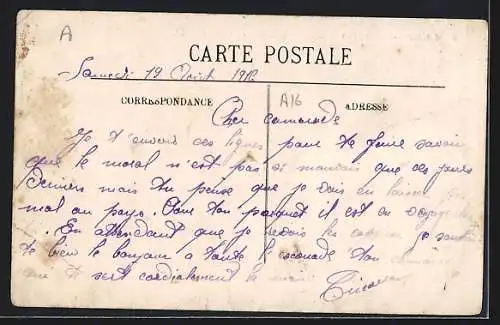 A
CARTE POSTALE
Samedi 19 Août 191
CORRESPONDANCE
A16
ADRESSE
Cher camarade
Je t'envois ces lignes pour te faire savoir
que le moral n'est pas si mauvais que ces jours
derniers mais tu pense que je vais en
mal au pays. Pour ton paquet il est en
En attendant que je je
te bien le bonjour a toute l'escouade ton
que te sert cordialement la main